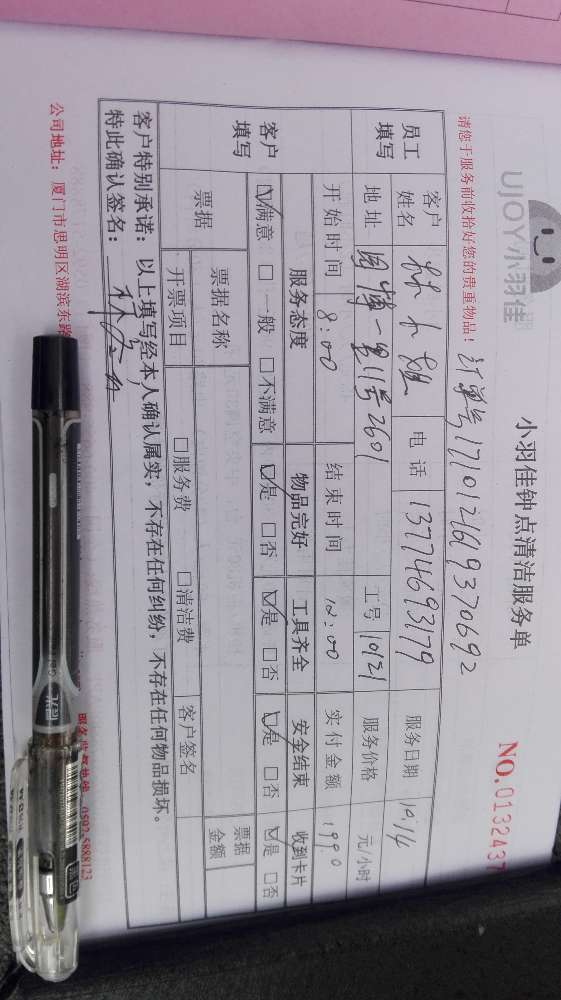 UJOY小羽佳
小羽佳钟点清洁服务单
NO.0132437
请您于服务前收拾好您的贵重物品!
订单号171012619370692
员工填写 客户姓名 林小姐 电话 13774693179 服务日期 10.14
地址 园博一里11号2601 工号 10121 服务价格 元/小时
开始时间 8:00 结束时间 12:00 实付金额 199.0
客户填写 服务态度 物品完好 工具齐全 安全结束 收到卡片
☑满意 □一般 □不满意 ☑是 □否 ☑是 □否 ☑是 □否 ☑是 □否
票据 票据名称 票据金额
开票项目 □服务费 □清洁费 客户签名
客户特别承诺:以上填写经本人确认属实,不存在任何纠纷,不存在任何物品损坏。
特此确认签名:
公司地址:厦门市思明区湖滨东路
服务监督热线 0592-5888123